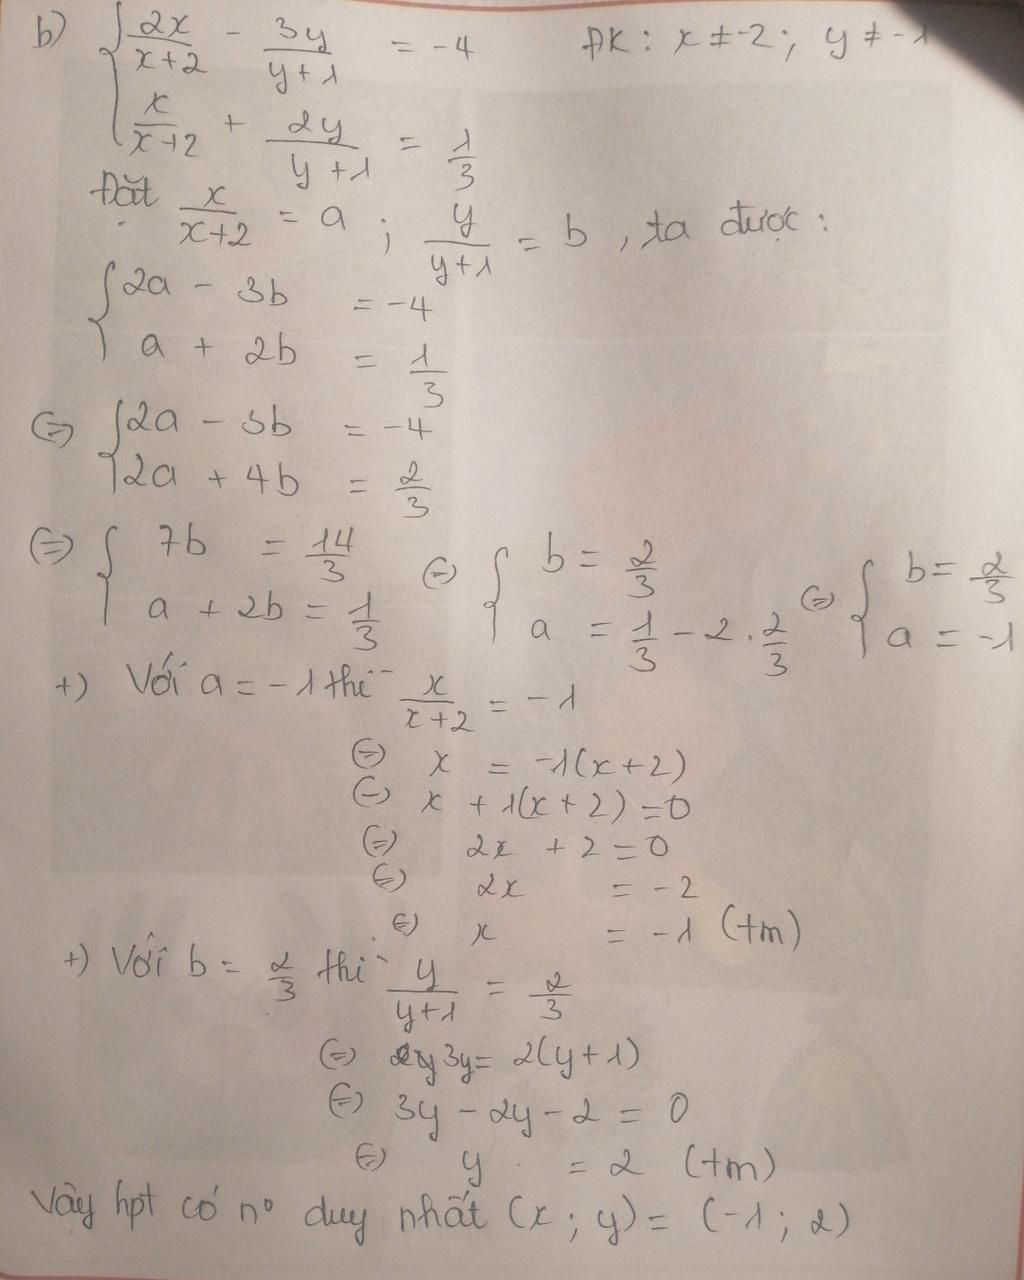 b) { 2x/(x+2) - 3y/(y+1) = -4 ĐK: x ≠ -2; y ≠ -1
x/(x+2) + 2y/(y+1) = 1/3
Đặt x/(x+2) = a ; y/(y+1) = b , ta được :
{ 2a - 3b = -4
a + 2b = 1/3
⇔ { 2a - 3b = -4
2a + 4b = 2/3
⇔ { 7b = 14/3 ⇔ { b = 2/3 ⇔ { b = 2/3
a + 2b = 1/3 a = 1/3 - 2 . 2/3 a = -1
+) Với a = -1 thì x/(x+2) = -1
⇔ x = -1(x+2)
⇔ x + 1(x+2) = 0
⇔ 2x + 2 = 0
⇔ 2x = -2
⇔ x = -1 (tm)
+) Với b = 2/3 thì y/(y+1) = 2/3
⇔ 3y = 2(y+1)
⇔ 3y - 2y - 2 = 0
⇔ y = 2 (tm)
Vậy hpt có nº duy nhất (x ; y) = (-1 ; 2)